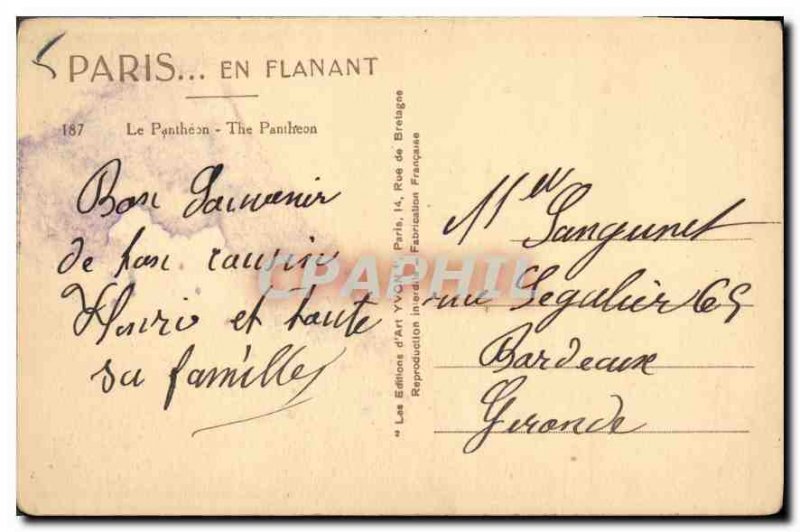 PARIS... EN FLANANT
187 Le Panthéon - The Pantheon
Bon Souvenir
de ton cousin
Henri et toute
sa famille
"Les Editions d'Art YVON", Paris, 14, Rue de Bretagne
Reproduction interdite Fabrication Française
CPAPHIL
rue Segalier 65
Bordeaux
Gironde